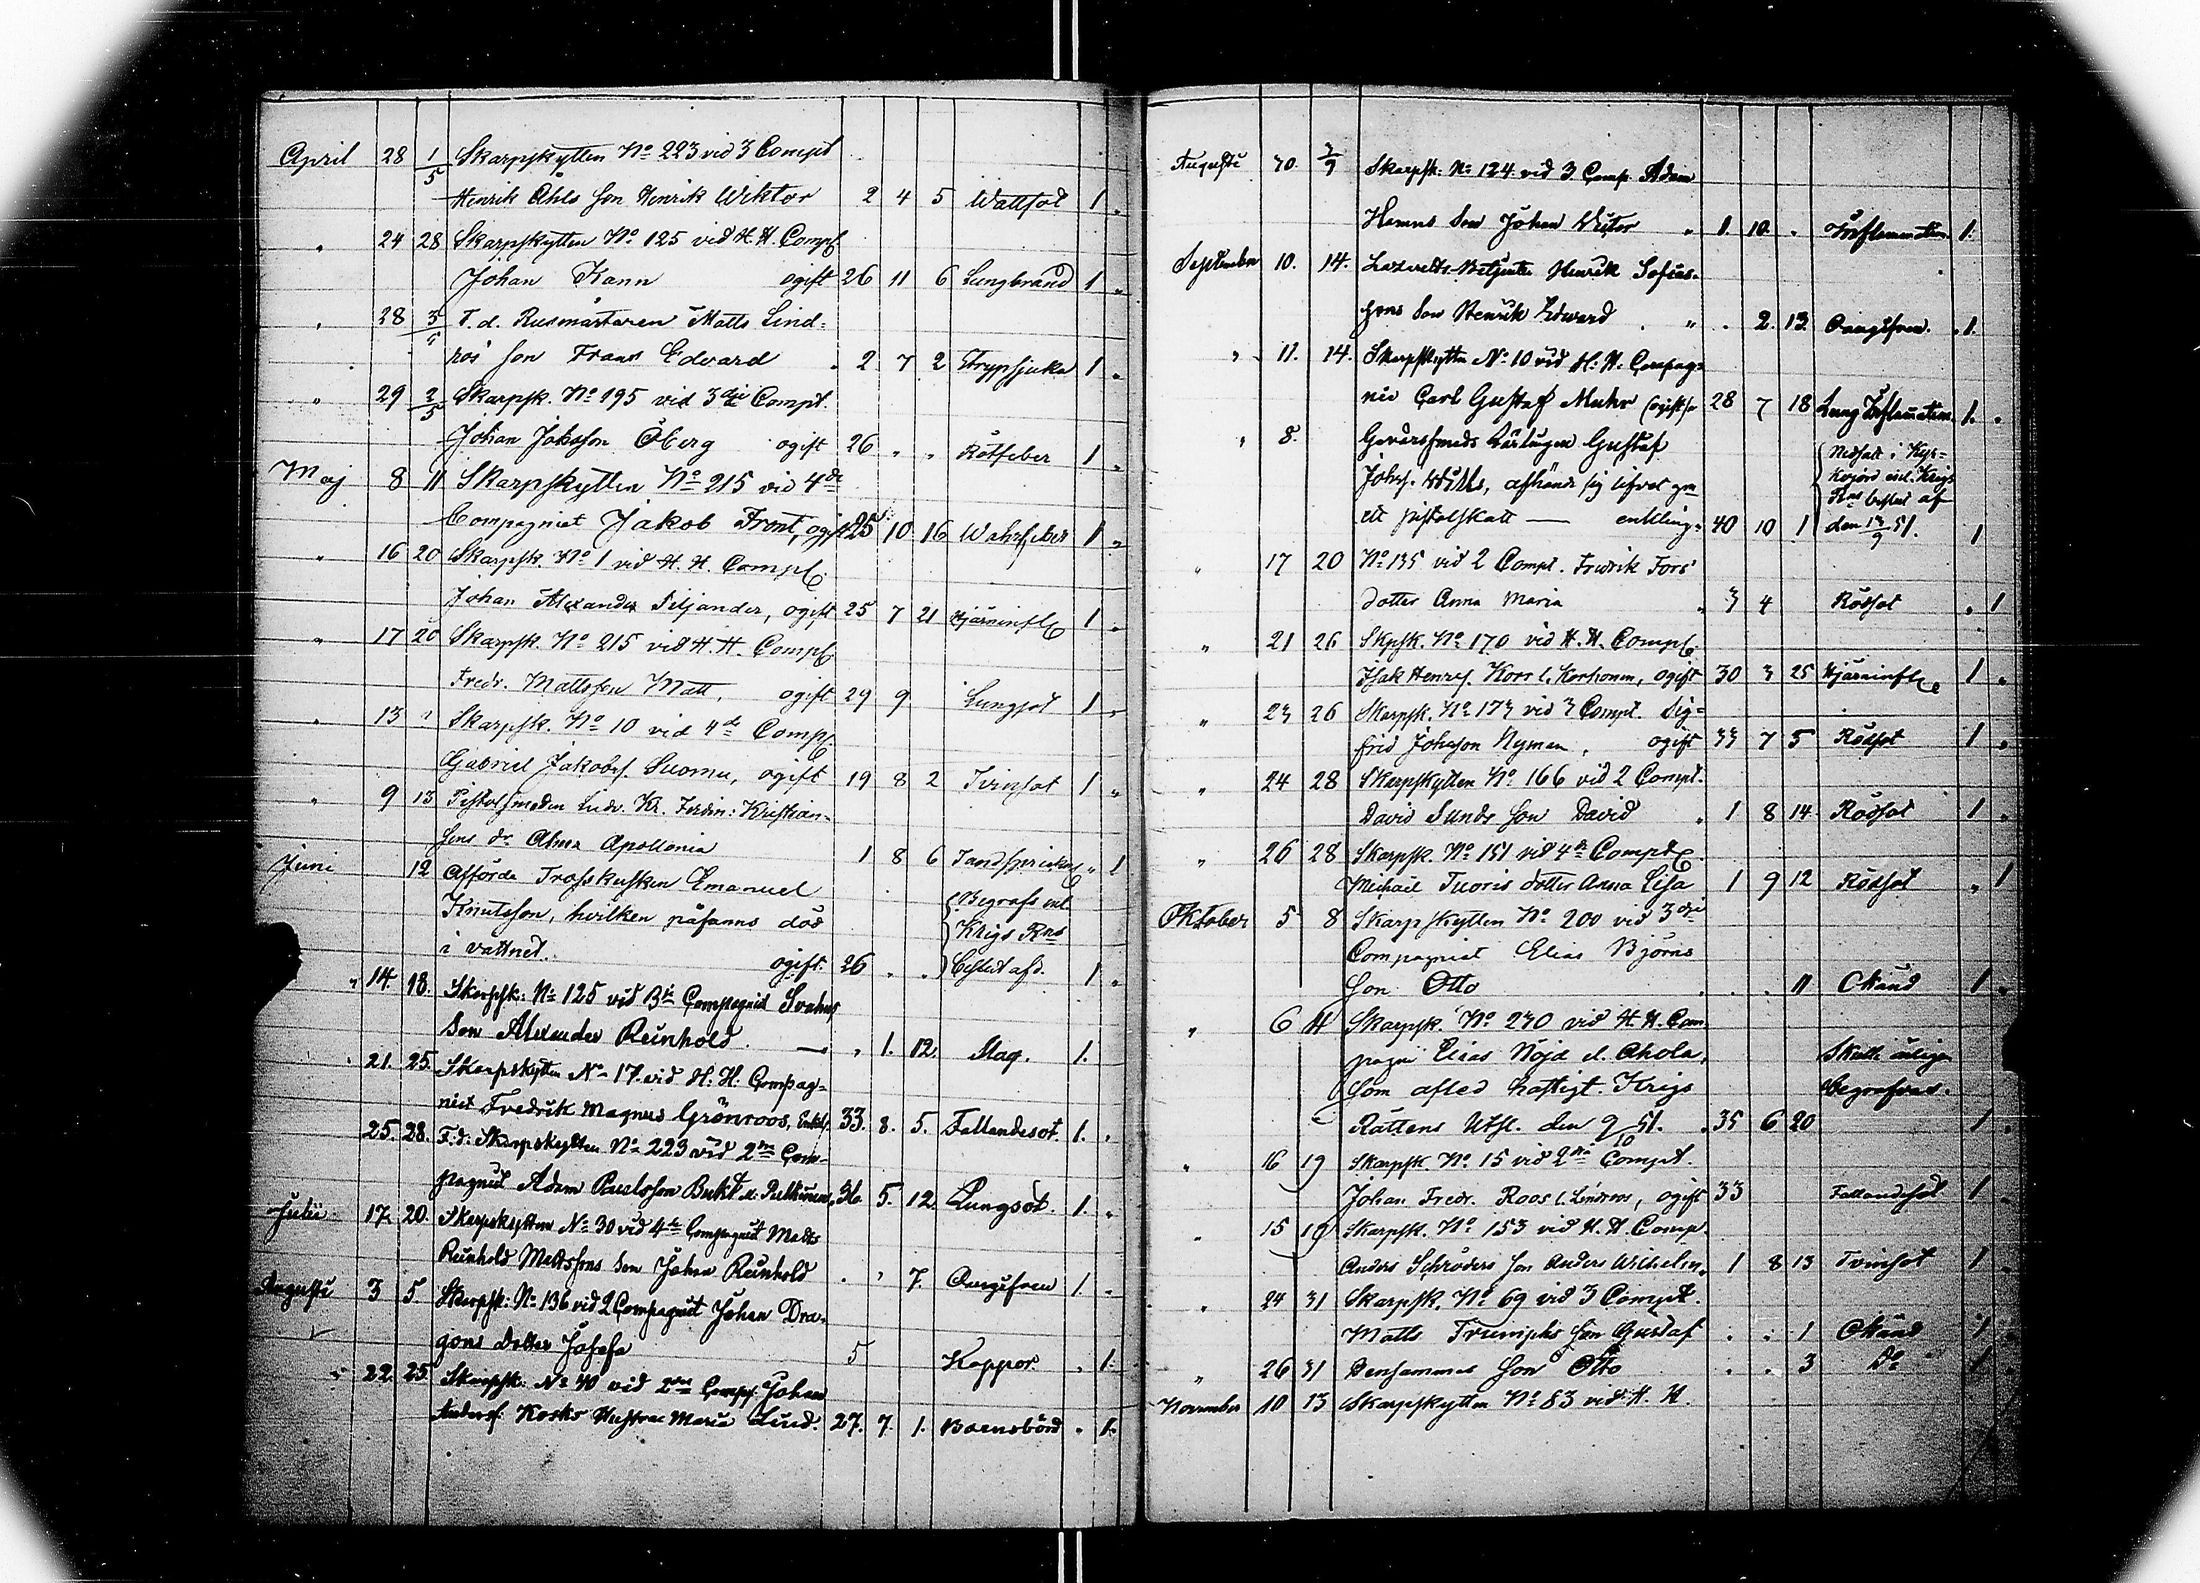 April 28 1/5 Skarpskytten No 223 vid 3 Compt
Henrik Åhls son Henrik Wiktor 2 4 5 Wattsot 1 "
" 24 28 Skarpskytten No 125 vid H. H. Comp.
Johan Kann ogift 26 11 6 Lungbrand 1 "
" 28 3/5 F. d. Rusmästaren Matts Lind=
ros son Frans Edvard 2 7 2 Strypsjuka 1 "
" 29 2/5 Skarpsk. No 195 vid 3dje Compt.
Johan Jakobsson Öberg ogift 26 " " Rötfeber 1 "
Maj 8 11 Skarpskytten No 215 vid 4de
Compagniet Jakob Front, ogift 25 10 16 Wahrfeber 1 "
" 16 20 Skarpsk. No 1 vid H. H. Comp.
Johan Alexander Siljander, ogift 25 7 21 Hjärninfl. 1 "
" 17 20 Skarpsk. No 215 vid H. H. Comp.
Fredr. Mattsson Matt, ogift 29 9 Lungsot 1 "
" 13 " Skarpsk. No 10 vid 4de Comp.
Gabriel Jakobs. Suomu, ogift 19 8 2 Tvinsot 1 "
" 9 13 Pistolsmeden Kr. Ferdin: Kristian=
sens dr Alma Apollonia 1 8 6 Tandsprickng " 1
Juni 12 Afförde Trosskusken Emanuel
Knutsson, hvilken påfanns död {Begrafs enl.
i vattnet. Krigs Rns
ogift. 26 " " Beslut afd. 1 "
" 14. 18. Skarpsk: No 125 vid Compagniet Svahns
Son Alexander Reinhold. — " 1. 12. Slag. 1.
" 21. 25. Skarpskytten No 17. vid H: H: Compag=
niet Fredrik Magnus Grönroos, Enkl. 33. 8. 5. Fallandesot. 1. "
25. 28. F: d: Skarpskytten No 223 vid 2dra Com=
pagniet Adam Paulsson 36. 5. 12. Lungsot. 1. "
Julii 17. 20. Skarpskytten No 30 vid 4de Compagniet Matts
Reinhold Mattssons Son Johan Reinhold . " 7. Okänd 1. "
Augusti 3 5. Skarpsk: No 136 vid 2 Compagniet Johan Dra=
gons Dotter Josefa 5 Koppor. " 1.
" 22. 25. Skarpsk: No 40 vid 2dra Comp. Johan
Anderss. Kosks Hustru Maria Lind. 27. 7. 1. Barnsbörd " 1.
Augusti 30. 3/9 Skarpsk: No 124 vid 3 Comp. Adam
Hamns Son Johan Victor " 1. 10. " Inflammation 1.
September 10. 14. Lazaretts-Betjenten Henrik Sofias=
sons Son Henrik Edward " . 2. 13. 1.
" 11. 14. Skarpskytten No 10 vid H: H. Compag=
niet Carl Gustaf Muhr (ogift) 28 7 18 Lung Inflamation 1. "
" 8. Gevärssmeds Lärlingen Gustaf
Johss. afhände sig lifvet gm
ett pistolskott — enkling 40 10 1 1
{Nedsatt i Kyr=
kojord enl. Krigs
Rns beslut af
den 13/9 51.
" 17 20 No 135 vid 2 Compt. Fredrik Fors'
dotter Anna Maria " 3 4 Rödsot " 1
" 21 26 Skpsk. No 170 vid H. H. Comp.
Isak Henrs. Korr l. Korhonen, ogift 30 3 25 Hjärninfl. 1 "
" 23 26 Skarpsk. No 173 vid 3 Compt. Sig=
frid Johsson Nyman, ogift 33 7 5 Rödsot 1 "
" 24 28 Skarpskytten No 166 vid 2 Compt.
David Sunds son David " 1 8 14 Rödsot 1 "
" 26 28 Skarpsk. No 151 vid 4de Compt.
Michail Tuoris dotter Anna Lisa 1 9 12 Rödsot " 1
Oktober 5 8 Skarpskytten No 200 vid 3dje
Compagniet Elias Björns
son Otto . . . 11 Okänd 1 "
" 6 Skarpsk. No 230 vid H. H. Com
pagn Elias Nöjd el. Ahola, Skulle ärligen
som afled hastigt. Krigs begrafvas.
Rättens Utsl. den 9/10 51. 35 6 20 1 "
" 16 19 Skarpsk. No 15 vid 2dra Compt.
Johan Fredr. Roos l. Lindroos, ogift 33 Fallandesot 1 "
" 15 19 Skarpsk. No 153 vid H. H. Comp.
Anders Schröders son Anders Wilhelm 1 8 13 Tvinsot 1 "
" 24 31 Skarpsk. No 69 vid 3 Compt.
Matts Trumphs son Gustaf . . 1 Okänd 1 "
" 26 31 Densammes son Otto . . 3 Do 1 "
November 10 13 Skarpskytten No 83 vid H. H.